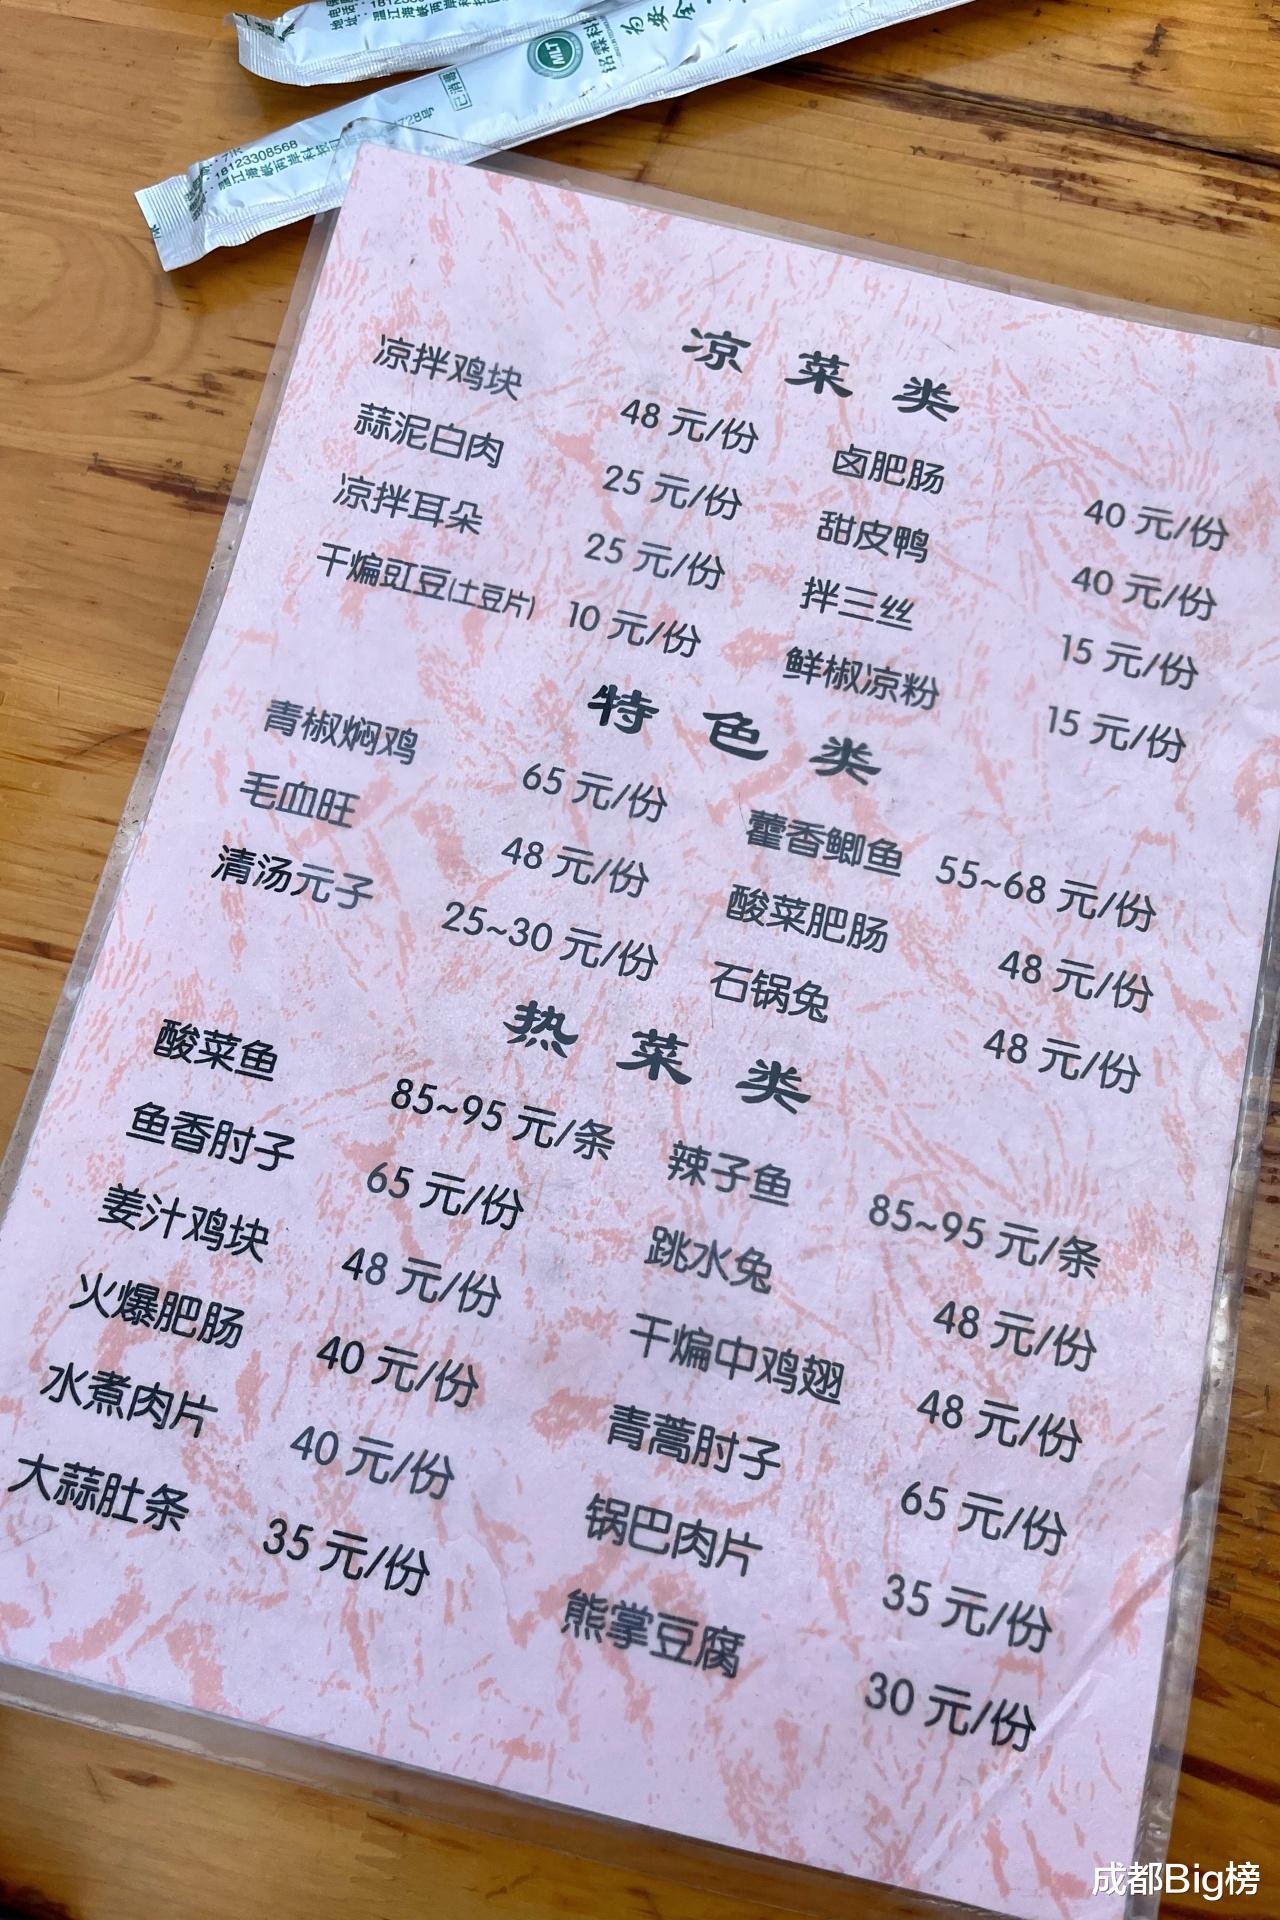 18123308568
温江海峡两岸科技
728号
已消毒
MLT
为安全
凉菜类
凉拌鸡块 48元/份 卤肥肠 40元/份
蒜泥白肉 25元/份 甜皮鸭 40元/份
凉拌耳朵 25元/份 拌三丝 15元/份
干煸豇豆(土豆片) 10元/份 鲜椒凉粉 15元/份
特色类
青椒焖鸡 65元/份 藿香鲫鱼 55~68元/份
毛血旺 48元/份 酸菜肥肠 48元/份
清汤元子 25~30元/份 石锅兔 48元/份
热菜类
酸菜鱼 85~95元/条 辣子鱼 85~95元/条
鱼香肘子 65元/份 跳水兔 48元/份
姜汁鸡块 48元/份 干煸中鸡翅 48元/份
火爆肥肠 40元/份 青蒿肘子 65元/份
水煮肉片 40元/份 锅巴肉片 35元/份
大蒜肚条 35元/份 熊掌豆腐 30元/份
成都Big榜